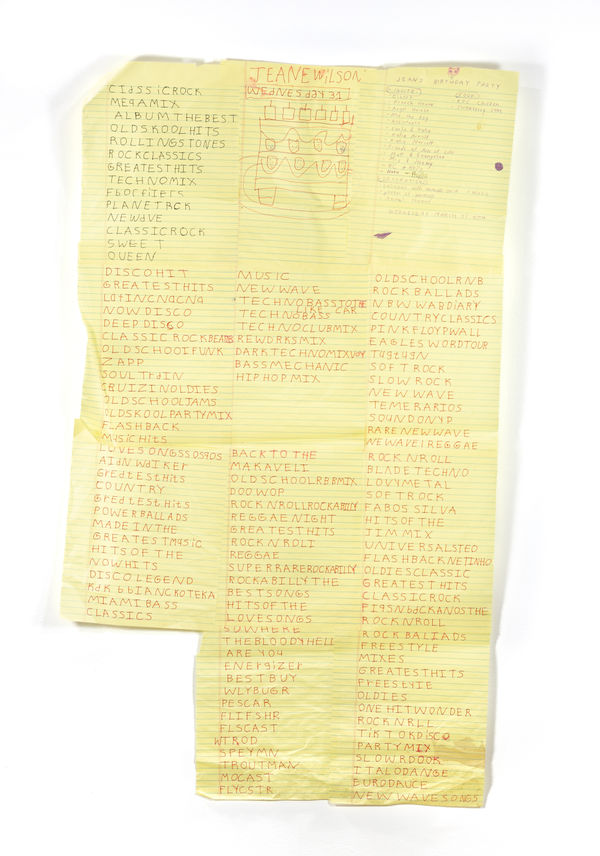 JEANEWiLSON
WEdNESdaY31
CldSSiCROCK
MEgAMIX
ALBUMTHEBEST
OLDSKOOLHITS
ROLLiNGSTONES
ROCKCLASSICS
GREATESTHITS
TECHNOMIX
PLANETROK
NEWdVE
CLASSICROCK
SWEET
QUEEN
JEAN'S BIRTHDAY PARTY
WEDNESDAY MARCH 31
DISCOHIT
GREATESTHITS
LdtINCNdCNd
NOWDISCO
DEEPDISCO
CLASSICROCKBEATS
OLDSCHOOlFUNK
ZAPP
SOULTRdIN
CRUIZINOLDIES
OLDSCHOOLJAMS
OLDSKOOLPARTYMIX
FLASHBACK
MUSICHITS
LOVESONGSSOSPOS
AldNWdlKER
GREdtEStHitS
COUNTRY
GREdtEStHitS
POWERBALLADS
MADEINTHE
GREATESTMUSIC
HITSOFTHE
NOWHITS
DISCOLEGEND
KdKbbIANCKOTEKA
MIAMIBASS
CLASSICS
MUSIC
NEWWAVE
TECHNOBASSTOTHE
LIKE CAR
TECHNOBASS
TECHNOCLUBMIX
REWORKSMIX
DARKTECHNOMIX
BASSMECHANIC
HIPHOPMIX
BACKTOTHE
MAKAVELI
OLDSCHOOLRBBMIX
DOOWOP
ROCKNROLLROCKABILLY
REGGAENIGHT
GREATESTHITS
ROCKNROLl
REGGAE
SUPERRAREROCKABILLY
ROCKABILLYTHE
BESTSONGS
HITSOFTHE
LOVESONGS
SOWHERE
THEBLOODYHELL
AREYOU
ENERgIZER
BESTBUY
WLYBUGR
PESCAR
FLIFSHR
FLSCAST
WTROD
SPEYMN
TROUTMAN
MOCAST
FLYCSTR
OLDSCHOOLRNB
ROCKBALLADS
NBWWABDIARY
COUNTRYCLASSICS
PINKFLOYPWALL
EAGLESWORDTOUR
TUgtUgN
SOFTROCK
SLOWROCK
NEWWAVE
TEMERARIOS
SOUNDONYP
RARENEWWAVE
NEWAVE1REGGAE
ROCKNROLL
BLADETECHNO
LOVYMETAL
SOFTROCK
FABOSSILVA
HITSOFTHE
JIMMIX
UNIVERSALSTEO
FLASHBACKNETJNHO
OLDIESCLASSIC
GREATESTHITS
CLASSICROCK
P195NbdCKANOSTHE
ROCKNROLL
ROCKBALIADS
FREESTYLE
MIXES
GREATESTHITS
FREEStYlE
OLDIES
ONEHITWONDER
ROCKNRLL
TiKTOKDISCO
PARTYMIX
SLOWRDOOK
ITALODANGE
EURODAUCE
NEWWAVESONGS